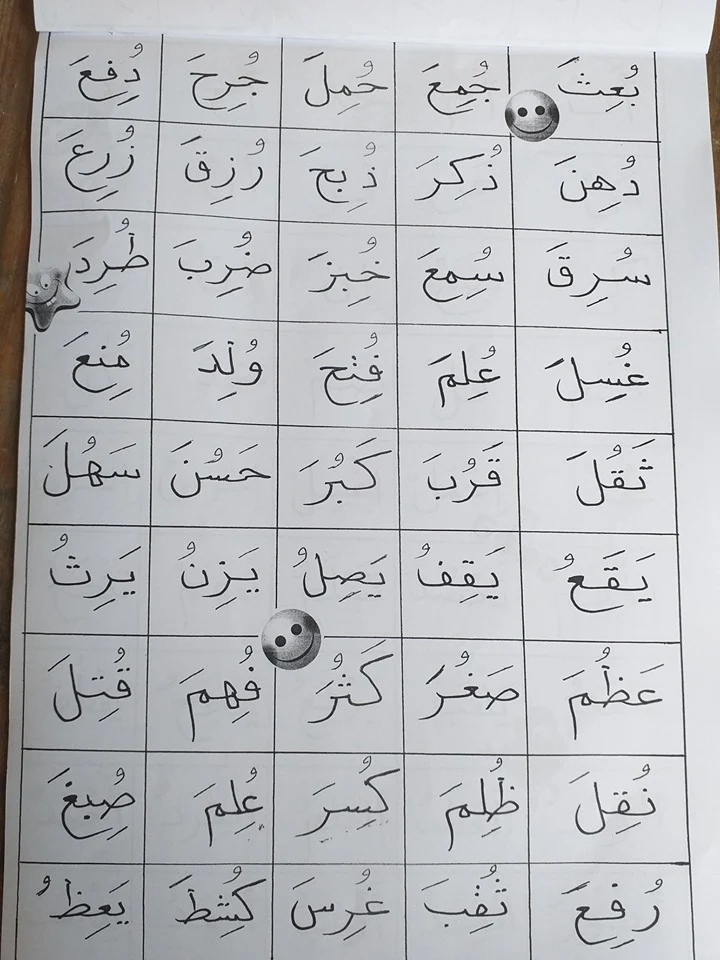 بُعِثَ جُمِعَ حُمِلَ جُرِحَ دُفِعَ
دُهِنَ ذُكِرَ ذُبِحَ رُزِقَ زُرِعَ
سُرِقَ سُمِعَ خُبِزَ ضُرِبَ طُرِدَ
غُسِلَ عُلِمَ فُتِحَ وُلِدَ مُنِعَ
ثَقُلَ قَرُبَ كَبُرَ حَسُنَ سَهُلَ
يَقَعُ يَقِفُ يَصِلُ يَزِنُ يَرِثُ
عَظُمَ صَغُرَ كَثُرَ فُهِمَ قُتِلَ
نُقِلَ ظُلِمَ كُسِرَ عُلِمَ صُبِغَ
رُفِعَ ثُقِبَ غُرِسَ كُشِطَ يَعِظُ